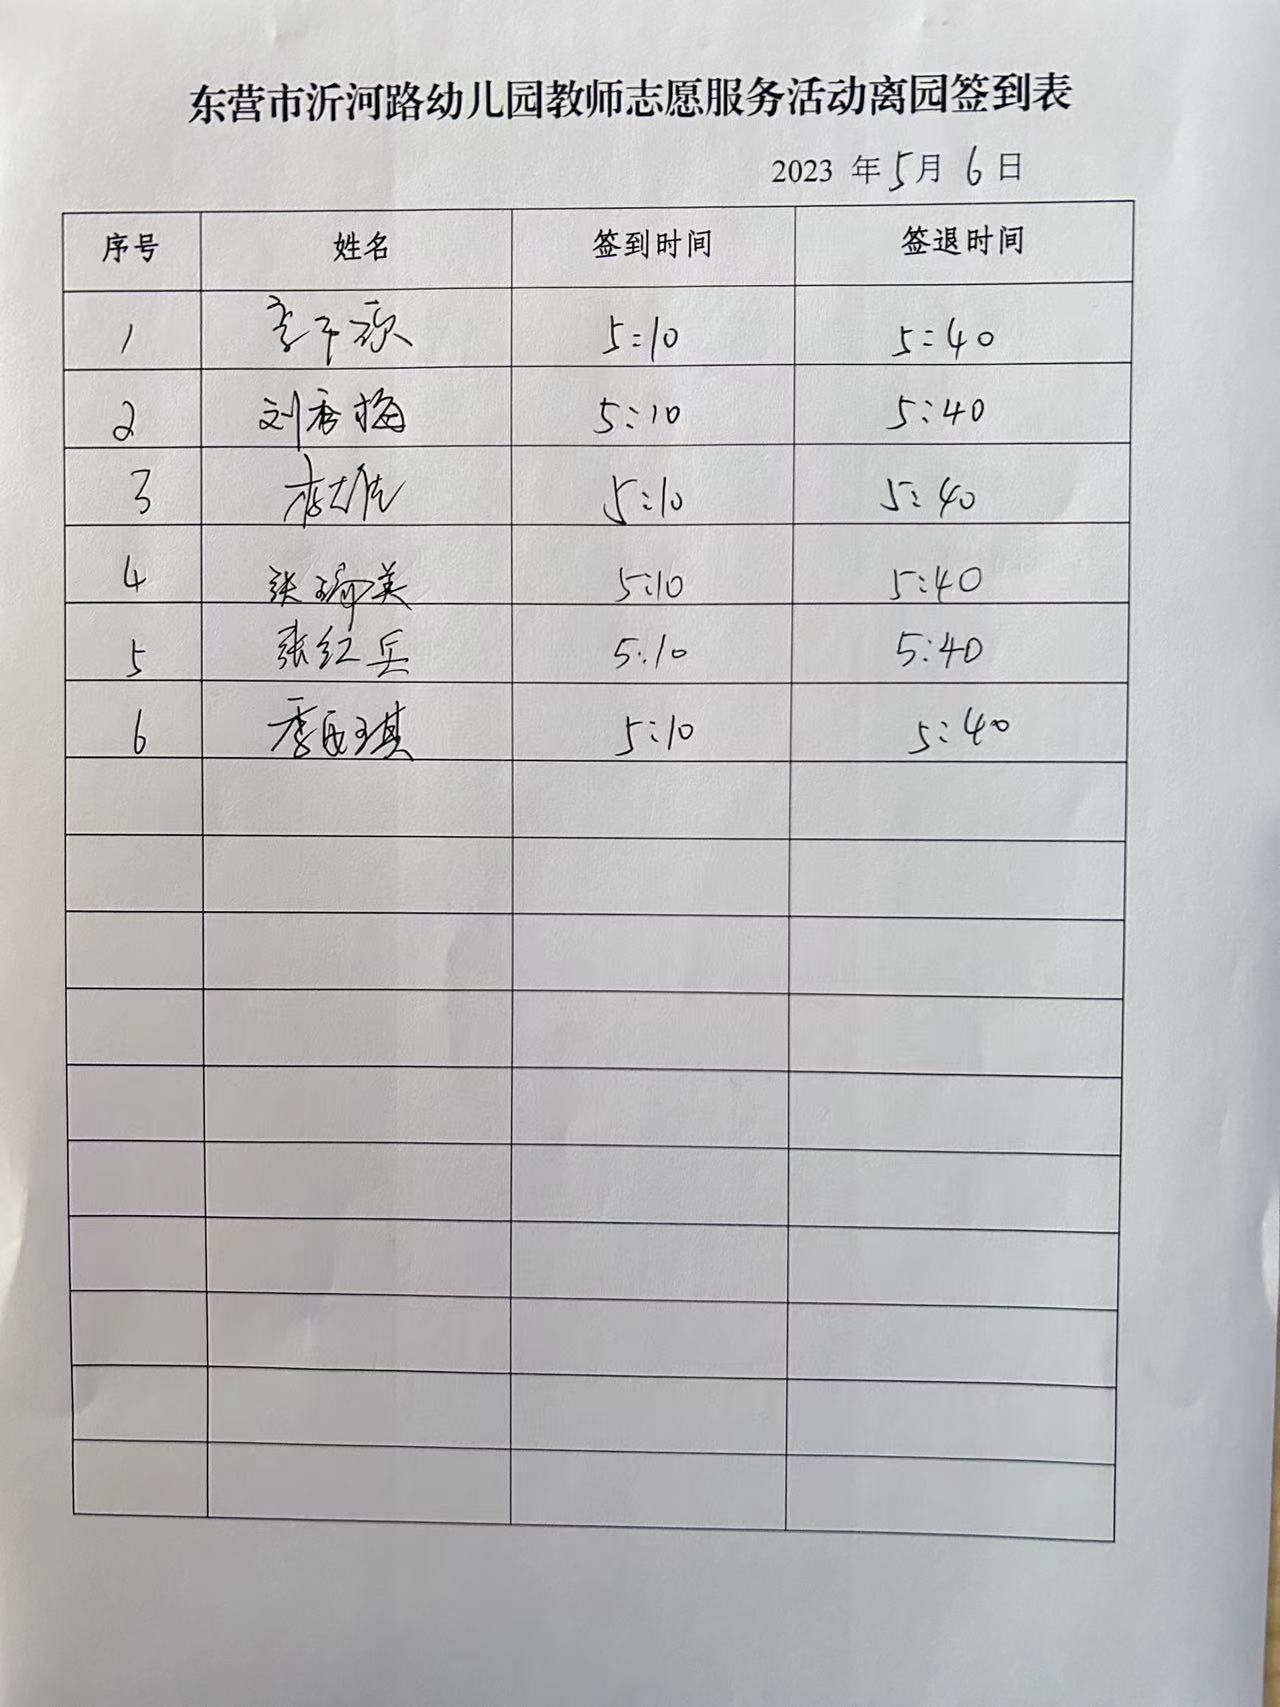 东营市沂河路幼儿园教师志愿服务活动离园签到表
2023 年 5 月 6 日
序号 姓名 签到时间 签退时间
1 李 5:10 5:40
2 刘秀梅 5:10 5:40
3 李 5:10 5:40
4 张瑜美 5:10 5:40
5 张红兵 5:10 5:40
6 季 琪 5:10 5:40